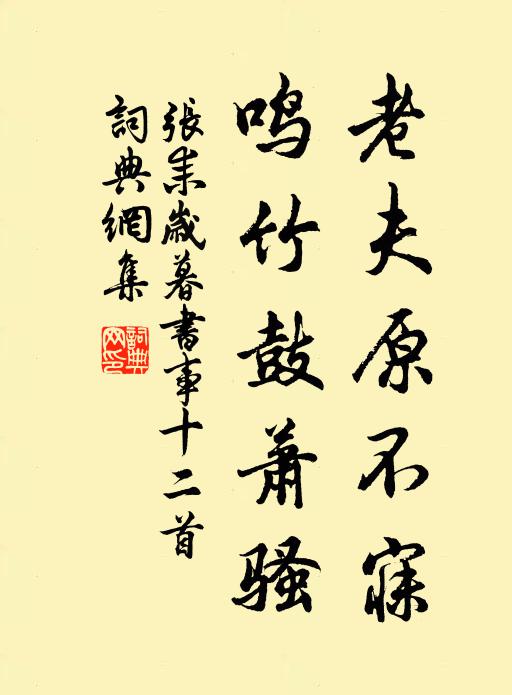 老夫原不寐
鸣竹鼓萧骚
張耒歲暮書事十二首
詞典網集
詞典網印